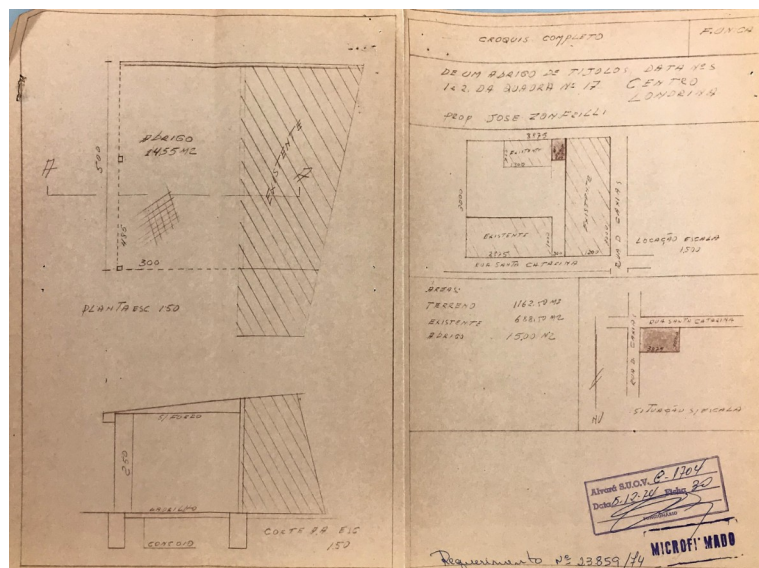 ABRIGO
1455 M2
EXISTENTE
A
A
500
485
300
PLANTA ESC 1:50
S/ FORRO
250
CORTE A.A ESC
1:50
CROQUIS COMPLETO
F. UNICA
DE UM ABRIGO DE TIJOLOS DATA NºS
1 E 2 DA QUADRA Nº 17 CENTRO
LONDRINA
PROP JOSE ZONFRILLI
3875
EXISTENTE
EXISTENTE
EXISTENTE
3000
2875
1200
RUA SANTA CATARINA
LOCAÇÃO ESCALA
1:500
AREAS:
TERRENO 1162.50 M2
EXISTENTE 688.50 M2
ABRIGO 15,00 M2
RUA SANTA CATARINA
SITUAÇÃO S/ ESCALA
Alvará S.U.O.V. C-1704
Data 5-12-74 Ficha 30
MICROFILMADO
Requerimento Nº 23.859/74